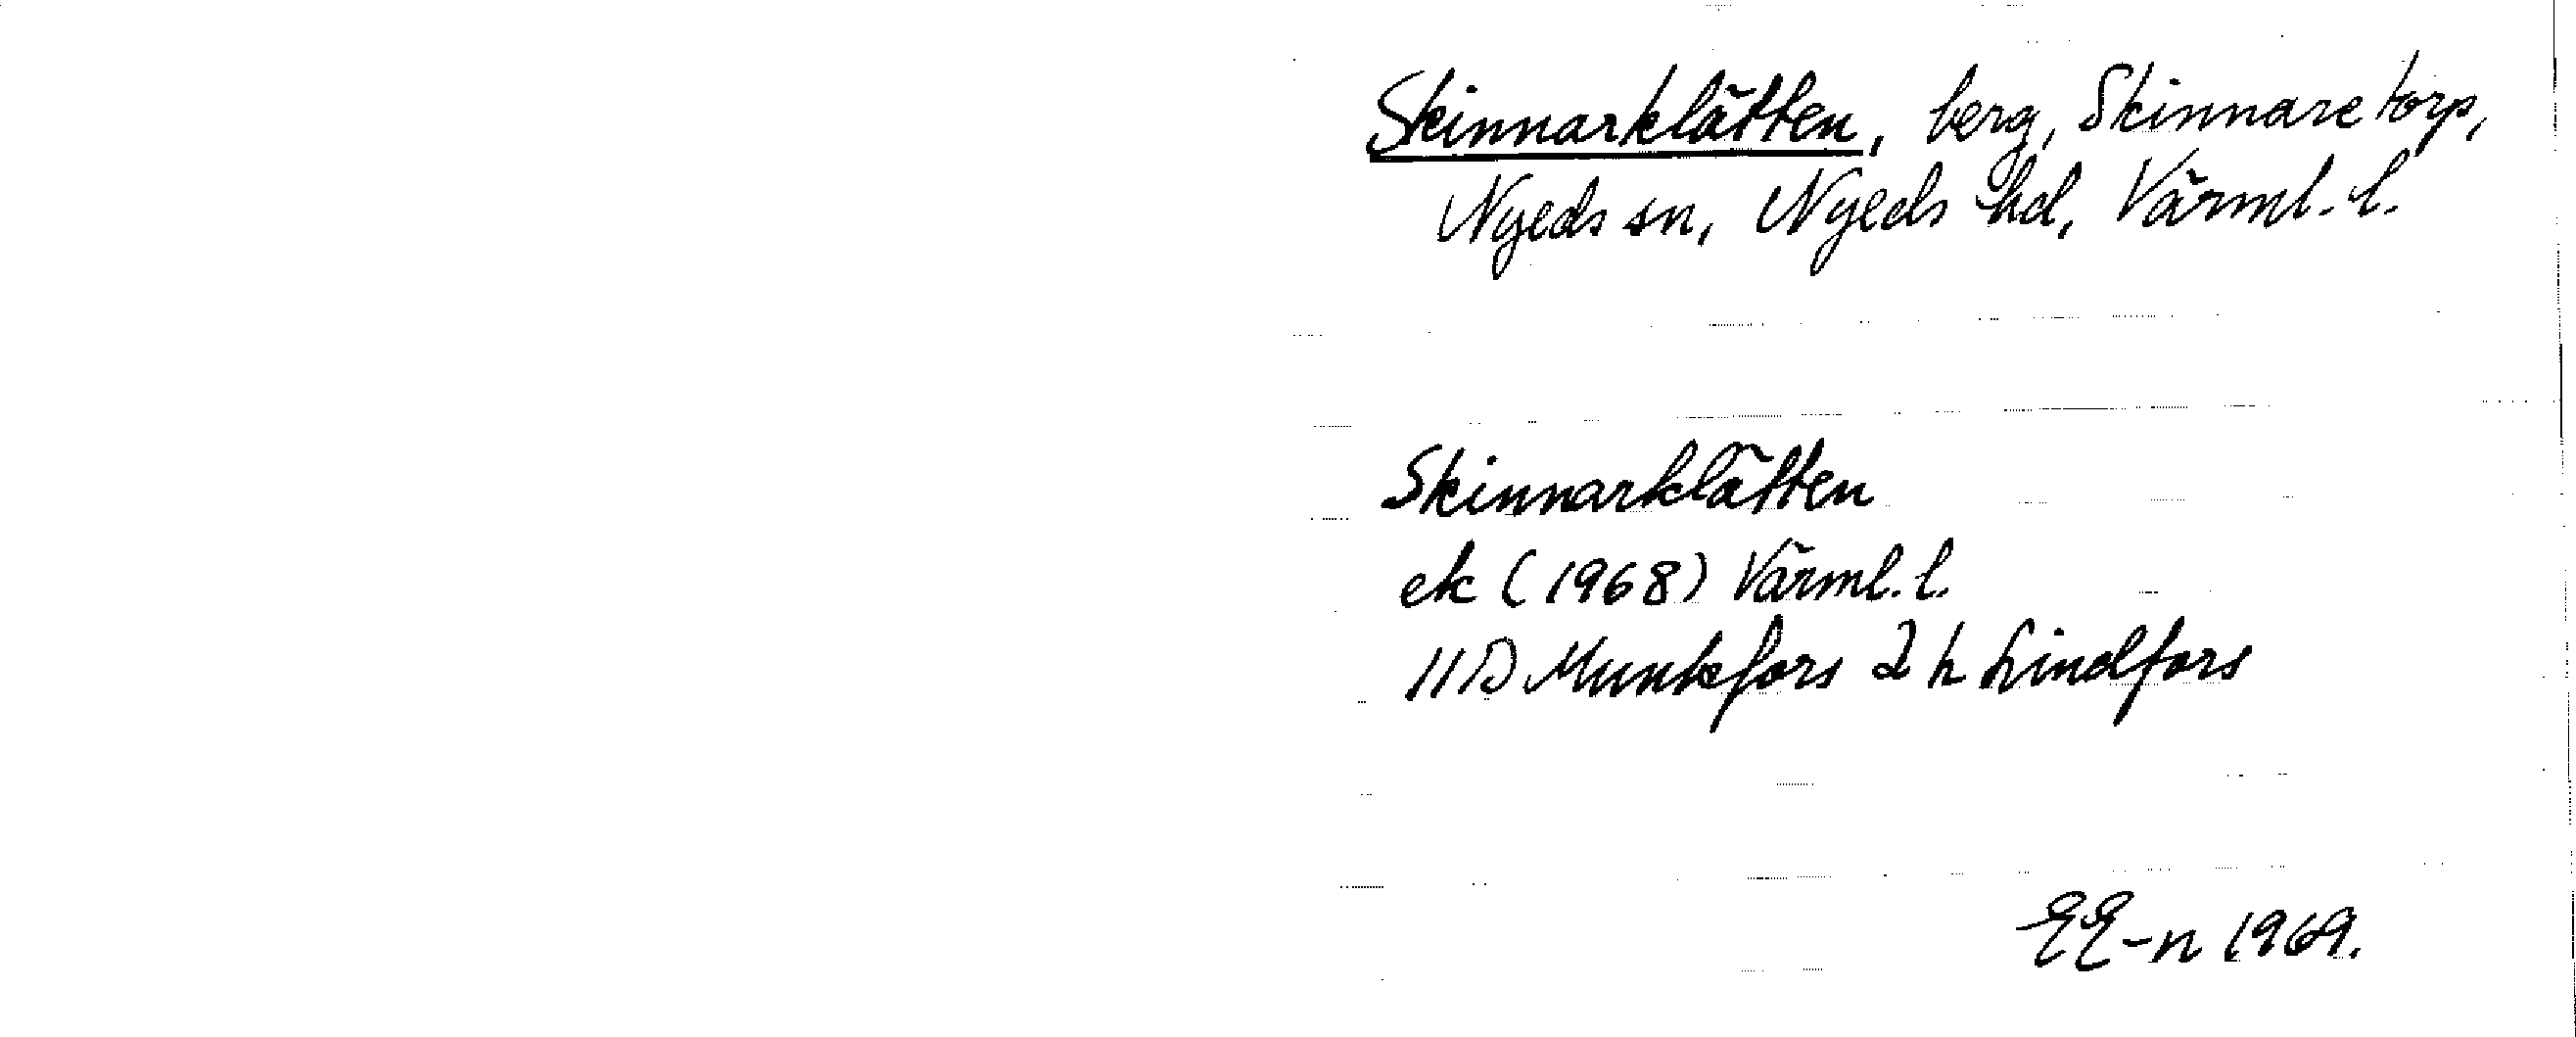 Skinnarklätten, berg, Skinnaretorp,
Nyeds sn, Nyeds hd, Värml. l.
Skinnarklätten
ek (1968) Värml. l.
11D Munkfors 2 h Lindfors
EE-n 1969.